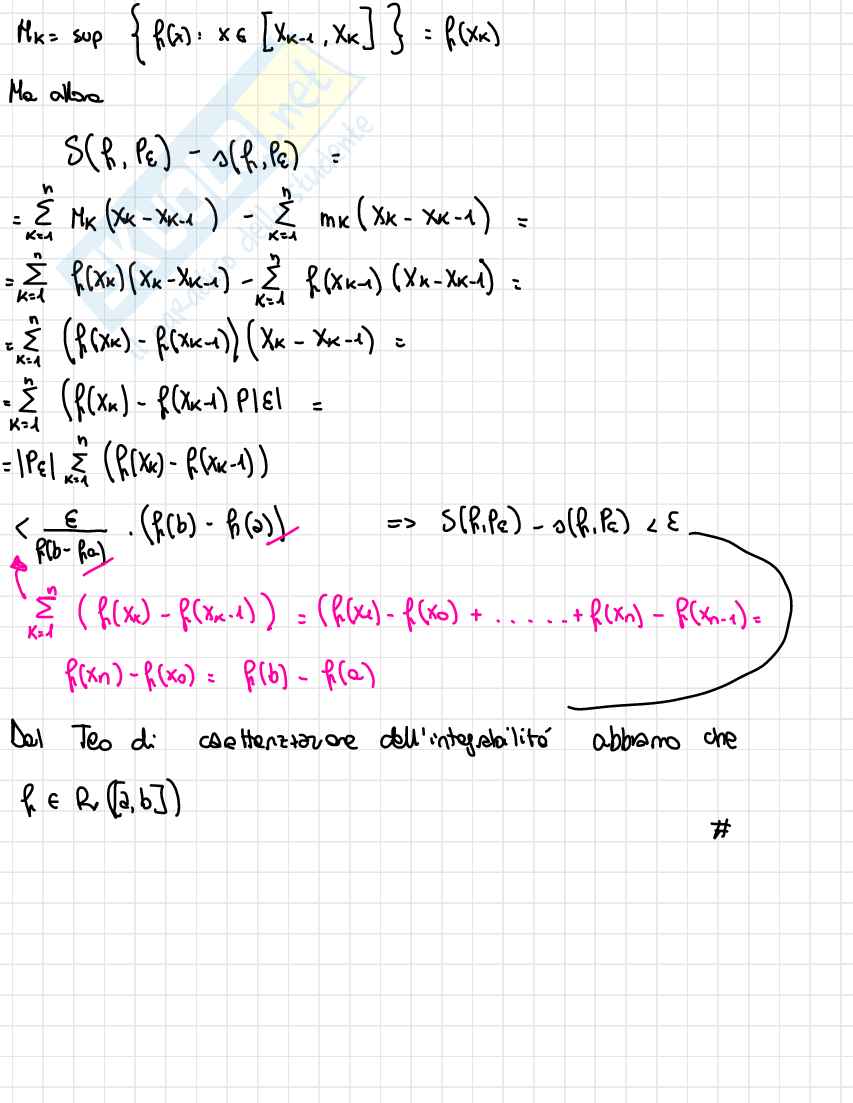 M_K = sup { f(x) : x ∈ [x_{K-1}, x_K] } = f(x_K)
Ma allora
S(f, P_ε) - s(f, P_ε) =
= Σ_{K=1}^{n} M_K (x_K - x_{K-1}) - Σ_{K=1}^{n} m_K (x_K - x_{K-1}) =
= Σ_{K=1}^{n} f(x_K)(x_K - x_{K-1}) - Σ_{K=1}^{n} f(x_{K-1}) (x_K - x_{K-1}) =
= Σ_{K=1}^{n} (f(x_K) - f(x_{K-1})) (x_K - x_{K-1}) =
= Σ_{K=1}^{n} (f(x_K) - f(x_{K-1}) P|ε| =
= |P_ε| Σ_{K=1}^{n} (f(x_K) - f(x_{K-1}))
< ε / f(b - fa) . (f(b) - f(a)) => S(f, P_ε) - s(f, P_ε) < ε
Σ_{K=1}^{n} (f(x_K) - f(x_{K-1})) = (f(x_1) - f(x_0) + ..... + f(x_n) - f(x_{n-1}) =
f(x_n) - f(x_0) = f(b) - f(a)
Dal Teo di caratterizzazione dell'integrabilitá abbiamo che
f ∈ R([a, b])
#
SKUOLA.net
il paradiso dello studente